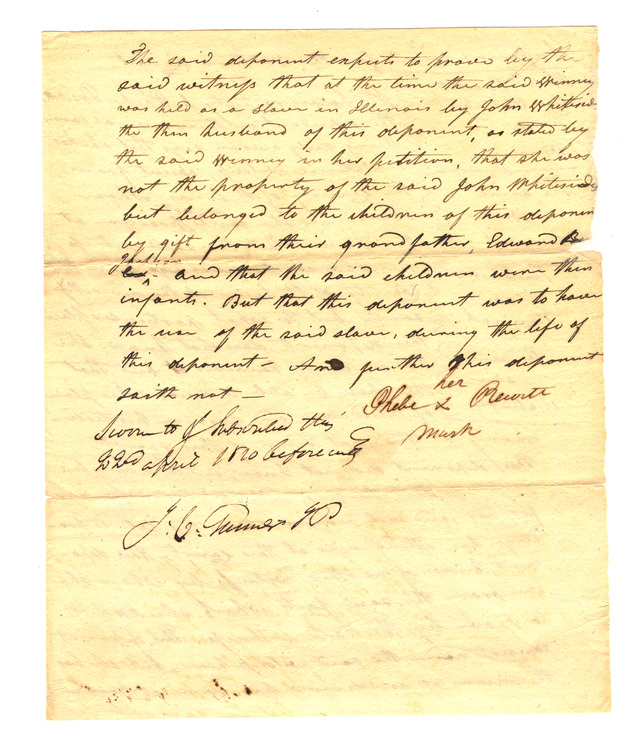 The said deponent expects to prove by the
said witness that at the time the said Winney
was held as a slave in Illinois by John Whiteside
the then husband of this deponent, as stated by
the said Winney in her petition, that she was
not the property of the said John Whiteside
but belonged to the children of this deponen
by gift from their grandfather, Edward
and that the said children were then
infants. But that this deponent was to have
the use of the said slave, during the life of
this deponent — And further This deponent
saith not —
her
Phebe x Prewitt
mark
Sworn to & Subscribed this
22nd april 1820 before me
J. C. Turner JP